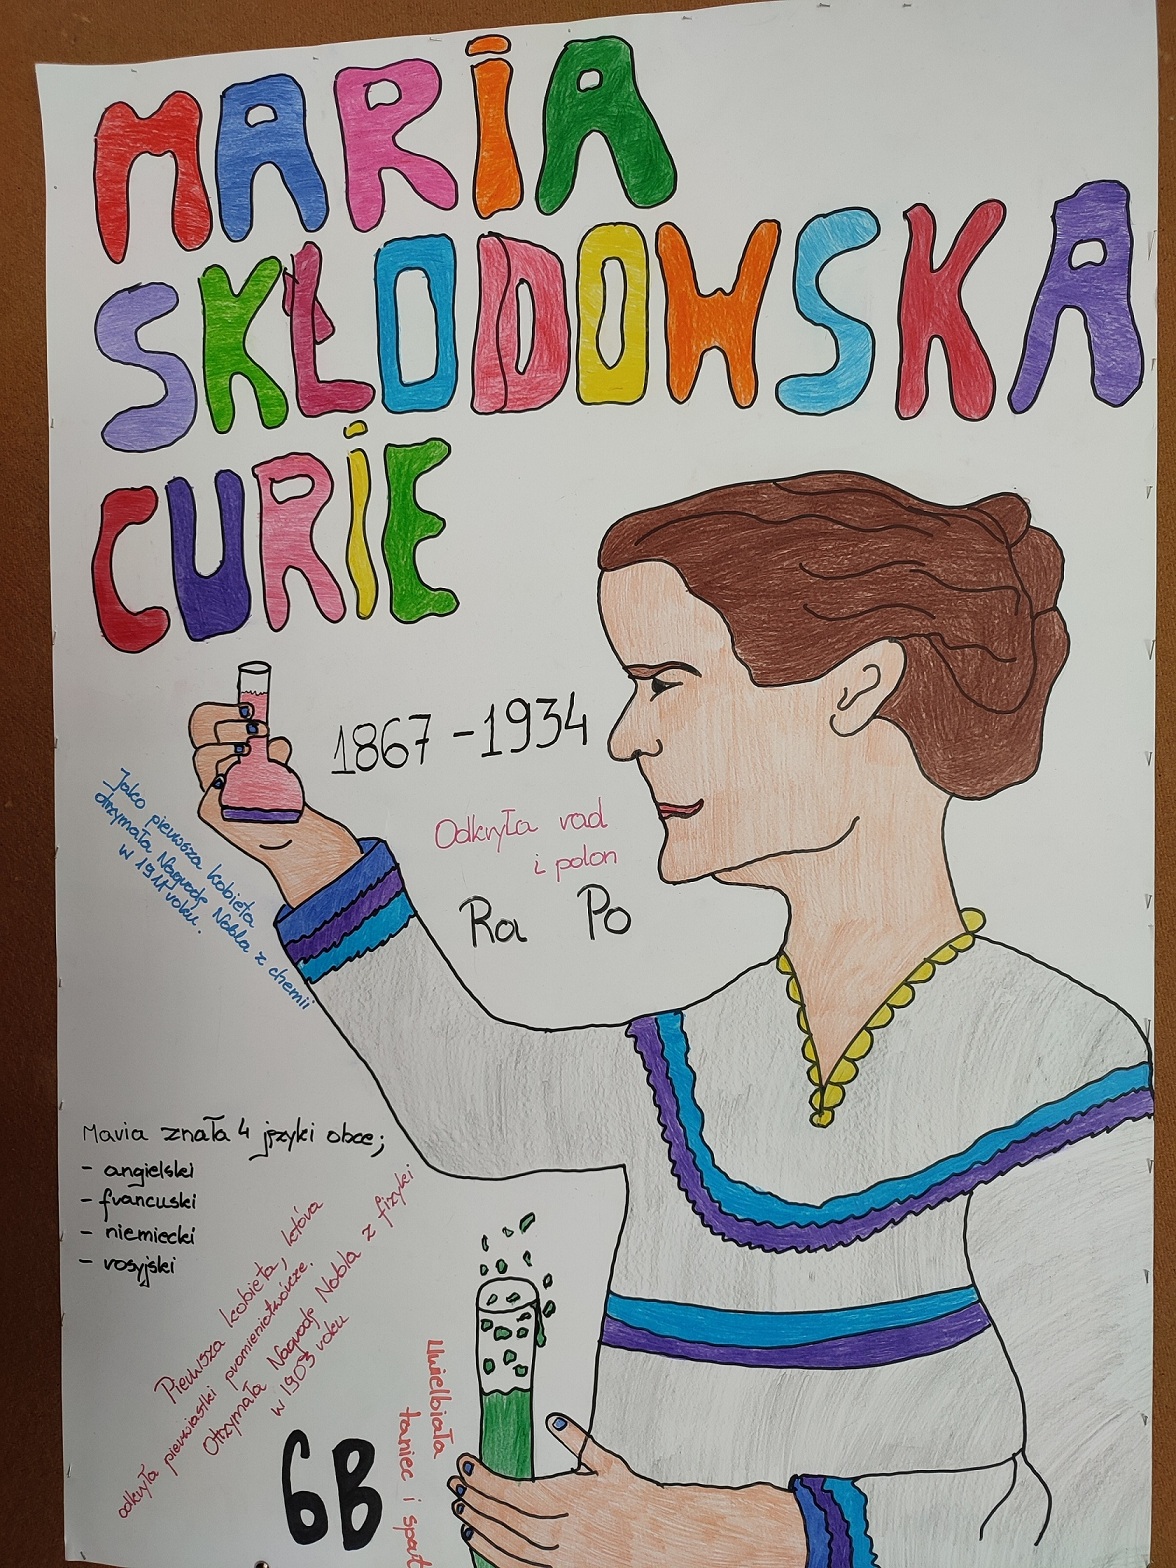 MARIA
SKŁODOWSKA
CURIE
1867-1934
Odkryła rad
i polon
Ra Po
Jako pierwsza kobieta
otrzymała Nagrodę Nobla z chemii
w 1911 roku.
Maria znała 4 języki obce;
- angielski
- francuski
- niemiecki
- rosyjski
Pierwsza kobieta, która
odkryła pierwiastki promieniotwórcze.
Otrzymała Nagrodę Nobla z fizyki
w 1903 roku
Uwielbiała
taniec i sport
6B